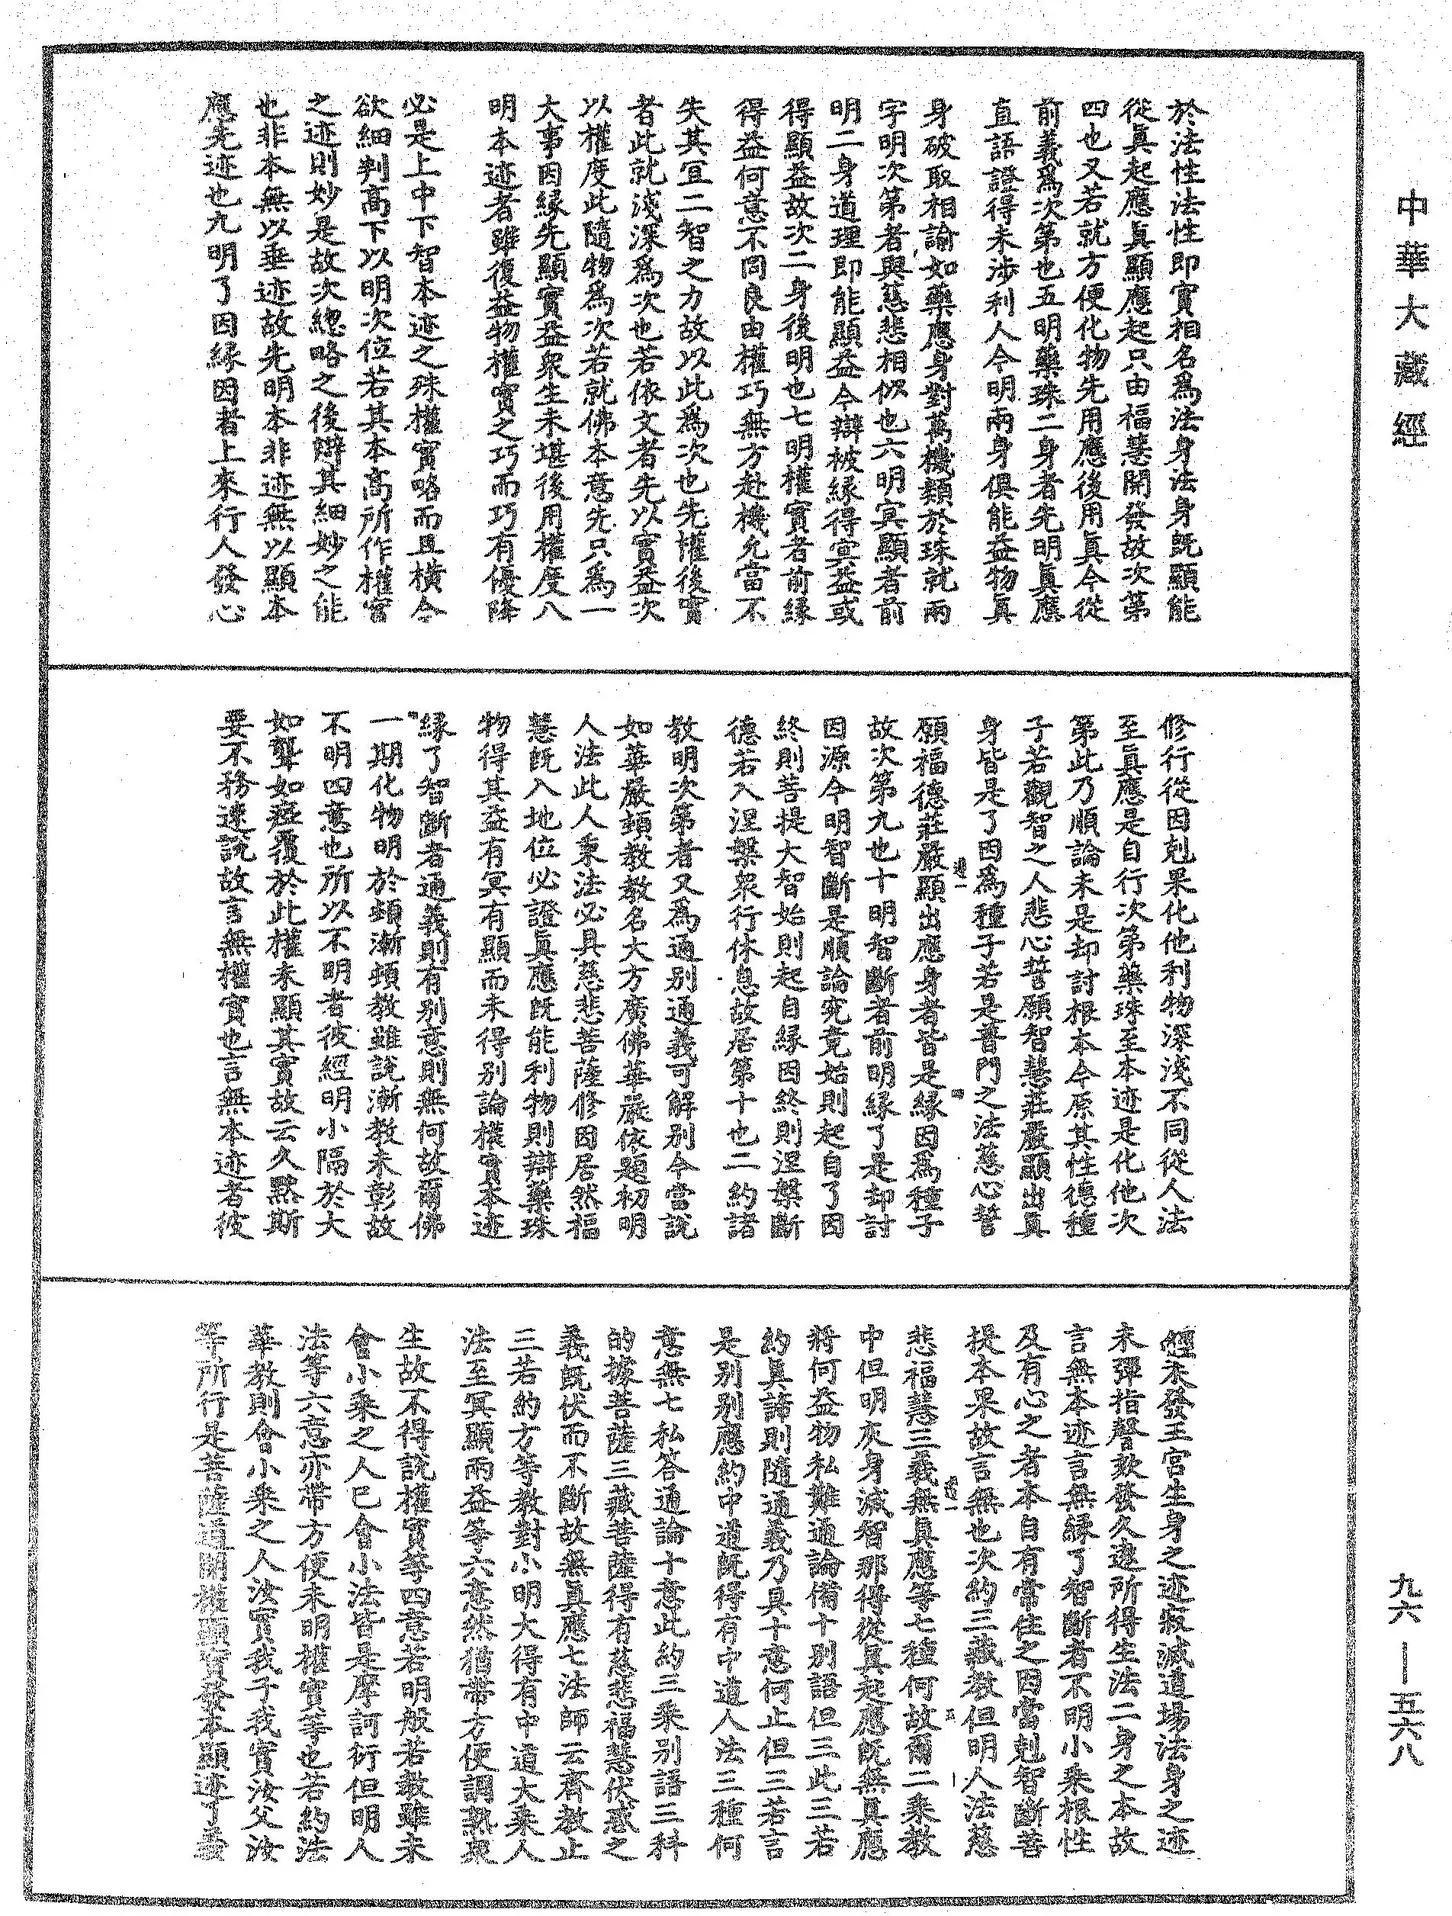 中華大藏經
於法性法性即實相名爲法身法身既顯能
從眞起應眞顯應起只由福慧開發故次第
四也又若就方便化物先用應後用眞今從
前義爲次第也五明藥珠二身者先明眞應
直語證得未涉利人今明兩身俱能益物眞
身破取相諭如藥應身對萬機類於珠就兩
字明次第者與慈悲相似也六明冥顯者前
明二身道理即能顯益今辯被緣得冥益或
得顯益故次二身後明也七明權實者前緣
得益何意不同良由權巧無方赴機允當不
失其宜二智之力故以此爲次也先權後實
者此就淺深爲次也若依文者先以實益次
以權度此隨物爲次若就佛本意先只爲一
大事因緣先顯實益衆生未堪後用權度八
明本迹者雖復益物權實之巧而巧有優降
必是上中下智本迹之殊權實略而且橫今
欲細判高下以明次位若其本高所作權實
之迹則妙是故次總略之後辯其細妙之能
也非本無以垂迹故先明本非迹無以顯本
應先迹也九明了因緣因者上來行人發心
修行從因剋果化他利物深淺不同從人法
至眞應是自行次第藥珠至本迹是化他次
第此乃順論未是却討根本今原其性德種
子若觀智之人悲心誓願智慧莊嚴顯出眞
身皆是了因爲種子若是普門之法慈心誓
願福德莊嚴顯出應身者皆是緣因爲種子
故次第九也十明智斷者前明緣了是却討
因源今明智斷是順論究竟始則起自了因
終則菩提大智始則起自緣因終則涅槃斷
德若入涅槃衆行休息故居第十也二約諸
教明次第者又爲通別通義可解別今當說
如華嚴頓教教名大方廣佛華嚴依題初明
人法此人秉法必具慈悲菩薩修因居然福
慧既入地位必證眞應既能利物則辯藥珠
物得其益有冥有顯而未得別論權實本迹
緣了智斷者通義則有別意則無何故爾佛
一期化物明於頓漸頓教雖說漸教未彰故
不明四意也所以不明者彼經明小隔於大
如聾如瘂覆於此權未顯其實故云久默斯
要不務速說故言無權實也言無本迹者彼
經未發王宮生身之迹寂滅道場法身之迹
未彈指謦欬發久遠所得生法二身之本故
言無本迹言無緣了智斷者不明小乘根性
及有心之者本自有常住之因當剋智斷菩
提本果故言無也次約三藏教但明人法慈
悲福慧三義無眞應等七種何故爾二乘教
中但明灰身滅智那得從眞起應既無眞應
將何益物私難通論備十別語但三此三若
約眞諦則隨通義乃具十意何止但三若言
是別別應約中道既得有中道人法三種何
意無七私答通論十意此約三乘別語三科
的據菩薩三藏菩薩得有慈悲福慧伏惑之
義既伏而不斷故無眞應七法師云齊教止
三若約方等教對小明大得有中道大乘人
法至冥顯兩益等六意然猶帶方便調熟衆
生故不得說權實等四意若明般若教雖未
會小乘之人已會小法皆是摩訶衍但明人
法等六意亦帶方便未明權實等也若約法
華教則會小乘之人汝實我子我實汝父汝
等所行是菩薩道開權顯實發本顯迹了義
九六—五六八